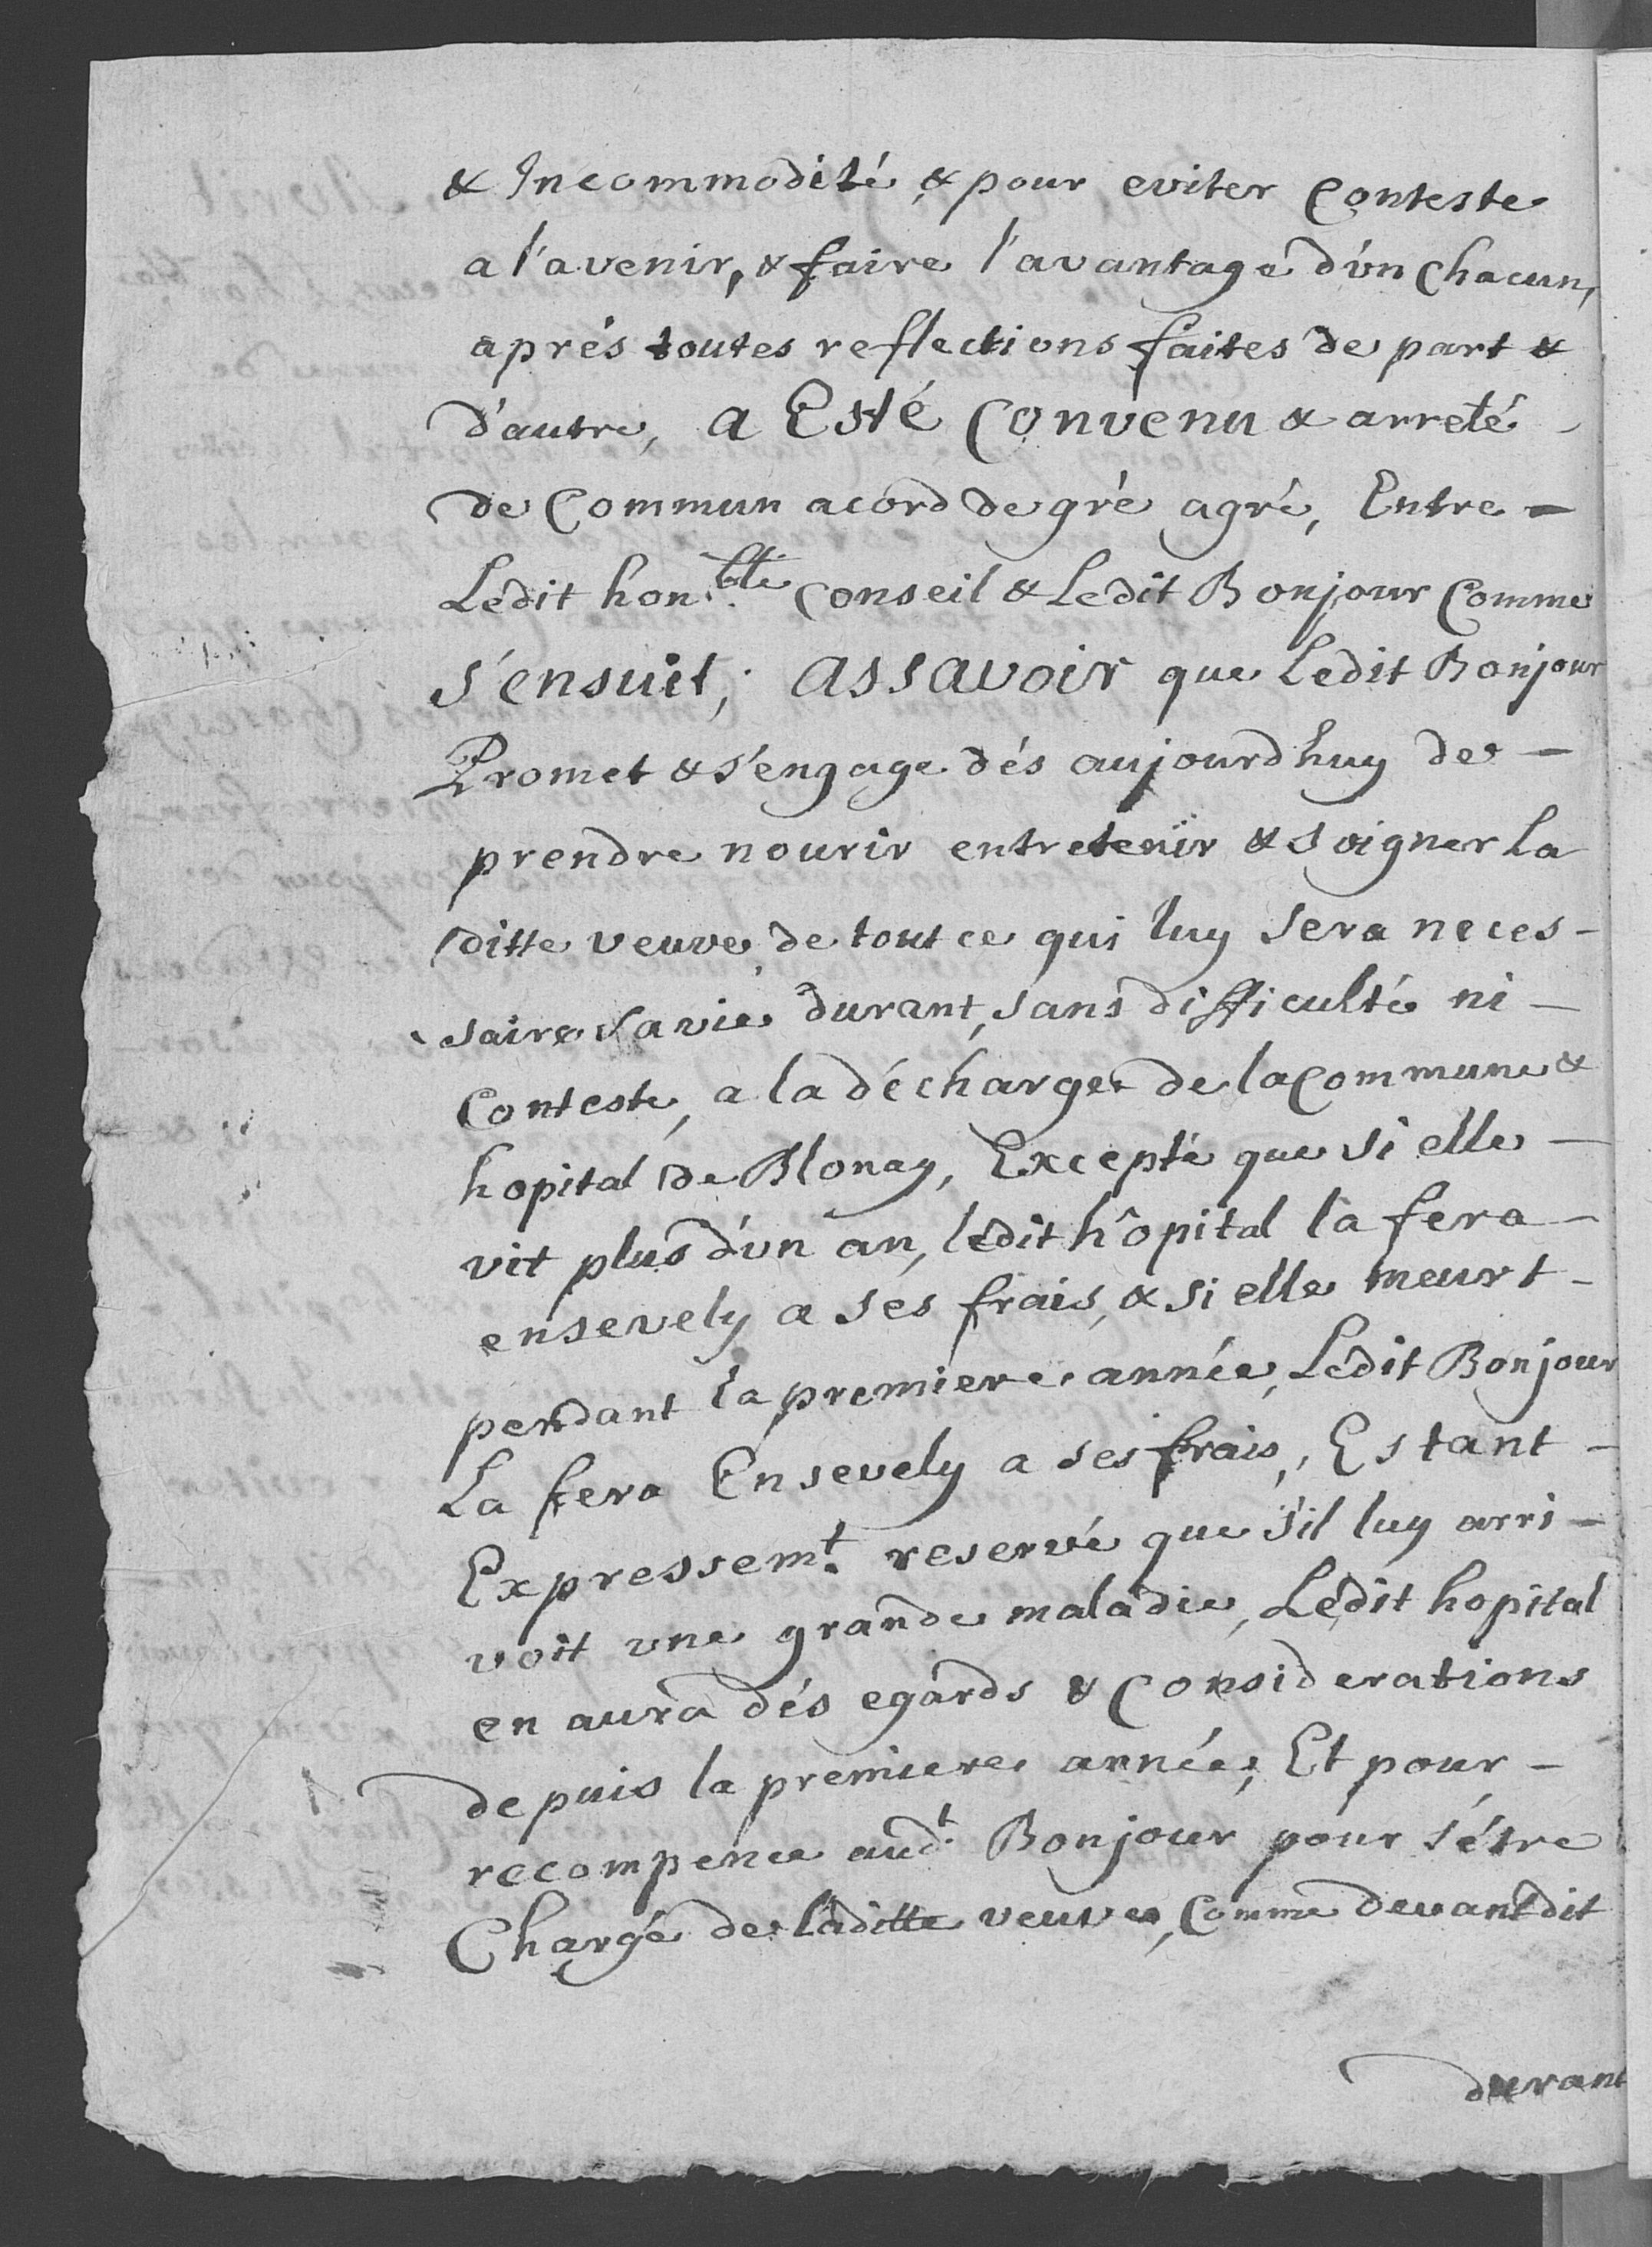 & Incommodité, & pour eviter Conteste
a l'avenir, & faire l'avantage d'un Chacun,
aprés toutes reflections faites de part &
d'autre, a Esté Convenu & arreté
de Commun acord de gré agré, Entre -
Ledit hon.ble Conseil & Ledit Bonjour Comme
s'ensuit; assavoir que Ledit Bonjour
Promet & s'engage dés aujourd'huy de -
prendre nourir entretenir & soigner La
ditte veuve de tout ce qui luy sera neces-
saire sa vie durant, sans difficulté ni -
Conteste, a la décharge de la Commune &
hopital de Blonay, Excepté que si elle -
vit plus d'un an, ledit hôpital la fera -
ensevely a ses frais, & si elle meurt -
pendant la premiere année, Ledit Bonjour
La fera Ensevely a ses frais, Estant -
Expressem.t reservé que s'il luy arri-
voit une grande maladie, Ledit hopital
en aura dés egards & Considerations
depuis la premiere année; Et pour -
recompence aud.t Bonjour pour s'étre
Chargé de laditte veuve, Comme devant dit
durant